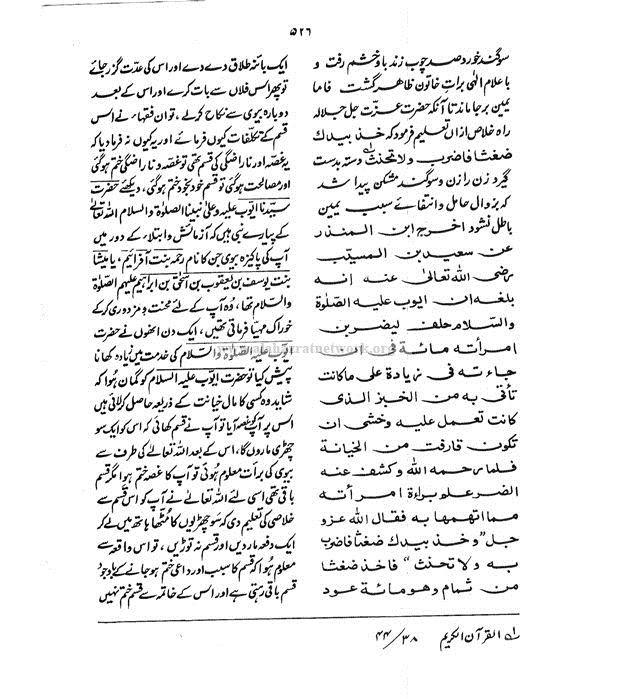 ۵۲۶
سوگند خورد صد چوب زند باو خشم رفت و
باعلام الٰہی برات خاتون ظاہر گشت فاما
یمین برجا ماند تا آنکہ حضرت عزت جل جلالہ
راہ خلاص ازان تعلیم فرمود کہ خذ بیدك
ضغثا فاضرب ولا تحنث دستہ بدست
گیر و زن را زن و سوگند مشکن پیدا شد
کہ بزوال حامل وانتفائے سبب یمین
باطل نشود اخرج ابن المنذر
عن سعید بن المسیب
رضی اللہ تعالیٰ عنہ انہ
بلغہ ان ایوب علیہ الصلوٰۃ
والسلام حلف لیضربن
امرأتہ مائۃ فی ان
جاءتہ فی زیادۃ علی ماکانت
تأتی بہ من الخبز الذی
کانت تعمل علیہ وخشی ان
تکون قارفت من الخیانۃ
فلما رحمہ اللہ وکشف عنہ
الضر علم براءۃ امرأتہ
مما اتھمھا بہ فقال اللہ عزو
جل "وخذ بیدك ضغثا فاضرب
بہ ولا تحنث" فاخذ ضغثا
من ثمام وھو مائۃ عود
ایک بائنہ طلاق دے دے اور اس کی عدت گزر جائے
تو پھر اس فلاں سے بات کرے اور اس کے بعد
دوبارہ بیوی سے نکاح کرلے، تو ان فقہاء نے اس
قسم کے تکلفات کیوں فرمائے اور یہ کیوں نہ فرمادیا کہ
یہ غصہ اور ناراضگی کی قسم تھی تو غصہ و ناراضگی ختم ہوگئی
اور مصالحت ہوگئی تو قسم خود بخود ختم ہوگئی، دیکھئے حضرت
سیدنا ایوب علیہ وعلیٰ نبینا الصلوٰۃ والسلام اللہ تعالیٰ
کے پیارے نبی ہیں کہ آزمائش وابتلاء کے دور میں
آپ کی پاکیزہ بیوی جن کا نام رحمہ بنت آفرائیم، یا میشا
بنت یوسف بن یعقوب بن اسحٰق بن ابراہیم علیہم الصلوٰۃ
والسلام تھا، وہ آپ کے لئے محنت ومزدوری کرکے
خوراک مہیا فرماتی تھیں، ایک دن انھوں نے حضرت
ایوب علیہ الصلوٰۃ والسلام کی خدمت میں زیادہ کھانا
پیش کیا تو حضرت ایوب علیہ السلام کو گمان ہوا کہ
شاید وہ کسی کا مال خیانت کے ذریعہ حاصل کرلائی ہیں
اس پر آپ کو غصہ آیا تو آپ نے قسم کھائی کہ اس کو ایک سو
چھڑی ماروں گا، اس کے بعد اللہ تعالےٰ کی طرف سے
بیوی کی برأت معلوم ہوئی تو آپ کا غصہ ختم ہوا مگر قسم
باقی تھی اسی لئے اللہ تعالےٰ نے آپ کو اس قسم سے
خلاصی کی تعلیم دی کہ سو چھڑیوں کا مُٹھا ہاتھ میں لے کر
ایک دفعہ ماردیں اور قسم نہ توڑیں، تو اس واقعہ سے
معلوم ہوا کہ قسم کا سبب اور داعی ختم ہوجانے کے باوجود
قسم باقی رہتی ہے اور اس کے خاتمہ سے قسم ختم نہیں
لہ القرآن الکریم ۳۸/۴۴